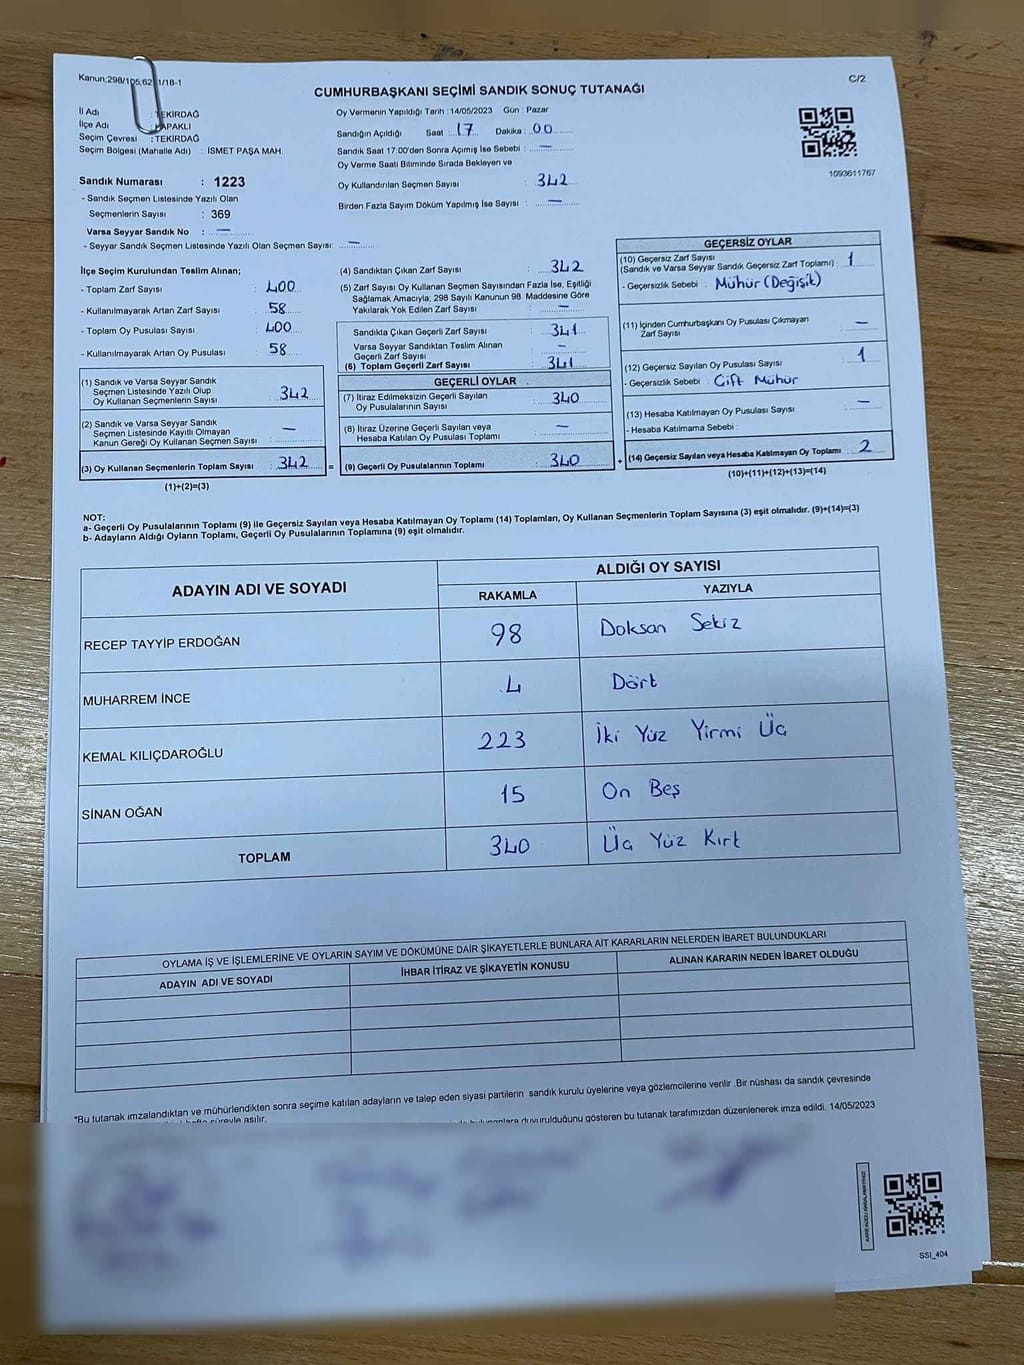 Kanun,298/105,62 1/18-1
C/2
CUMHURBAŞKANI SEÇİMİ SANDIK SONUÇ TUTANAĞI
İl Adı : TEKİRDAĞ
İlçe Adı KAPAKLI
Seçim Çevresi : TEKİRDAĞ
Seçim Bölgesi (Mahalle Adı) : İSMET PAŞA MAH.
Sandık Numarası : 1223
- Sandık Seçmen Listesinde Yazılı Olan
Seçmenlerin Sayısı : 369
Varsa Seyyar Sandık No : —
- Seyyar Sandık Seçmen Listesinde Yazılı Olan Seçmen Sayısı: —
Oy Vermenin Yapıldığı Tarih : 14/05/2023 Gün : Pazar
Sandığın Açıldığı Saat : 17 Dakika : 00
Sandık Saat 17.00'den Sonra Açımış İse Sebebi : —
Oy Verme Saati Bitiminde Sırada Bekleyen ve
Oy Kullandırılan Seçmen Sayısı : 342
Birden Fazla Sayım Döküm Yapılmış İse Sayısı : —
1093611767
İlçe Seçim Kurulundan Teslim Alınan;
- Toplam Zarf Sayısı : 400
- Kullanılmayarak Artan Zarf Sayısı : 58
- Toplam Oy Pusulası Sayısı : 400
- Kullanılmayarak Artan Oy Pusulası : 58
(1) Sandık ve Varsa Seyyar Sandık
Seçmen Listesinde Yazılı Olup
Oy Kullanan Seçmenlerin Sayısı : 342
(2) Sandık ve Varsa Seyyar Sandık
Seçmen Listesinde Kayıtlı Olmayan
Kanun Gereği Oy Kullanan Seçmen Sayısı : —
(3) Oy Kullanan Seçmenlerin Toplam Sayısı : 342 =
(1)+(2)=(3)
(4) Sandıktan Çıkan Zarf Sayısı : 342
(5) Zarf Sayısı Oy Kullanan Seçmen Sayısından Fazla İse, Eşitliği
Sağlamak Amacıyla, 298 Sayılı Kanunun 98. Maddesine Göre
Yakılarak Yok Edilen Zarf Sayısı : —
Sandıkta Çıkan Geçerli Zarf Sayısı : 341
Varsa Seyyar Sandıktan Teslim Alınan
Geçerli Zarf Sayısı : —
(6) Toplam Geçerli Zarf Sayısı : 341
GEÇERLİ OYLAR
(7) İtiraz Edilmeksizin Geçerli Sayılan
Oy Pusulalarının Sayısı : 340
(8) İtiraz Üzerine Geçerli Sayılan veya
Hesaba Katılan Oy Pusulası Toplamı : —
(9) Geçerli Oy Pusulalarının Toplamı : 340 +
GEÇERSİZ OYLAR
(10) Geçersiz Zarf Sayısı
(Sandık ve Varsa Seyyar Sandık Geçersiz Zarf Toplamı) : 1
- Geçersizlik Sebebi : Mühür (Değişik)
(11) İçinden Cumhurbaşkanı Oy Pusulası Çıkmayan
Zarf Sayısı : —
(12) Geçersiz Sayılan Oy Pusulası Sayısı : 1
- Geçersizlik Sebebi : Çift Mühür
(13) Hesaba Katılmayan Oy Pusulası Sayısı : —
- Hesaba Katılmama Sebebi :
(14) Geçersiz Sayılan veya Hesaba Katılmayan Oy Toplamı : 2
(10)+(11)+(12)+(13)=(14)
NOT:
a- Geçerli Oy Pusulalarının Toplamı (9) ile Geçersiz Sayılan veya Hesaba Katılmayan Oy Toplamı (14) Toplamları, Oy Kullanan Seçmenlerin Toplam Sayısına (3) eşit olmalıdır. (9)+(14)=(3)
b- Adayların Aldığı Oyların Toplamı, Geçerli Oy Pusulalarının Toplamına (9) eşit olmalıdır.
ADAYIN ADI VE SOYADI
ALDIĞI OY SAYISI
RAKAMLA YAZIYLA
RECEP TAYYİP ERDOĞAN 98 Doksan Sekiz
MUHARREM İNCE 4 Dört
KEMAL KILIÇDAROĞLU 223 İki Yüz Yirmi Üç
SİNAN OĞAN 15 On Beş
TOPLAM 340 Üç Yüz Kırt
OYLAMA İŞ VE İŞLEMLERİNE VE OYLARIN SAYIM VE DÖKÜMÜNE DAİR ŞİKAYETLERLE BUNLARA AİT KARARLARIN NELERDEN İBARET BULUNDUKLARI
ADAYIN ADI VE SOYADI İHBAR İTİRAZ VE ŞİKAYETİN KONUSU ALINAN KARARIN NEDEN İBARET OLDUĞU
*Bu tutanak imzalandıktan ve mühürlendikten sonra seçime katılan adayların ve talep eden siyasi partilerin sandık kurulu üyelerine veya gözlemcilerine verilir .Bir nüshası da sandık çevresinde
hafta süreyle asılır.
duyurulduğunu gösteren bu tutanak tarafımızdan düzenlenerek imza edildi. 14/05/2023
SSI_404